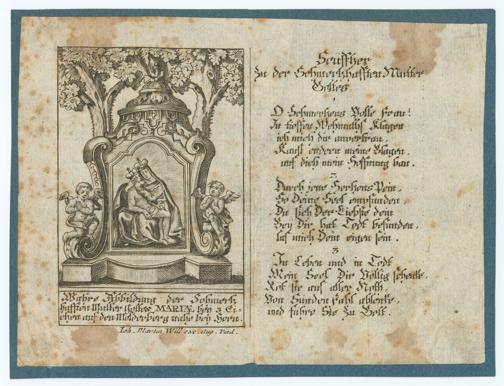 Wahre Abbildung der Schmertz
hafften Mutter Gottes MARIÆ bey 3 Ei-
chen auf den Molderberg nache bey Horn.
Joh. Martin Will exc. Aug. Vind.
Seüfftzer
Zu der Schmertzhafften Mutter
Gottes
1
O Schmertzens Volle Frau!
In tieffen Wehmuths Klagen
ich mich dir anvertrau.
Kanst endern meine Plagen
auf dich mein Hoffnung bau.
2.
Durch jene Hertzens Pein.
So Deine Seel empfunden
Da sich Der Liebste dein
Bey Dir hat Todt befunden,
laß mich Dein eigen sein.
3.
In Leben und in Todt
Mein Seel Dir Völlig schencke
Ret sie auß aller Noth.
Von Sünden sie ablencke,
und führe Sie zu Gott.